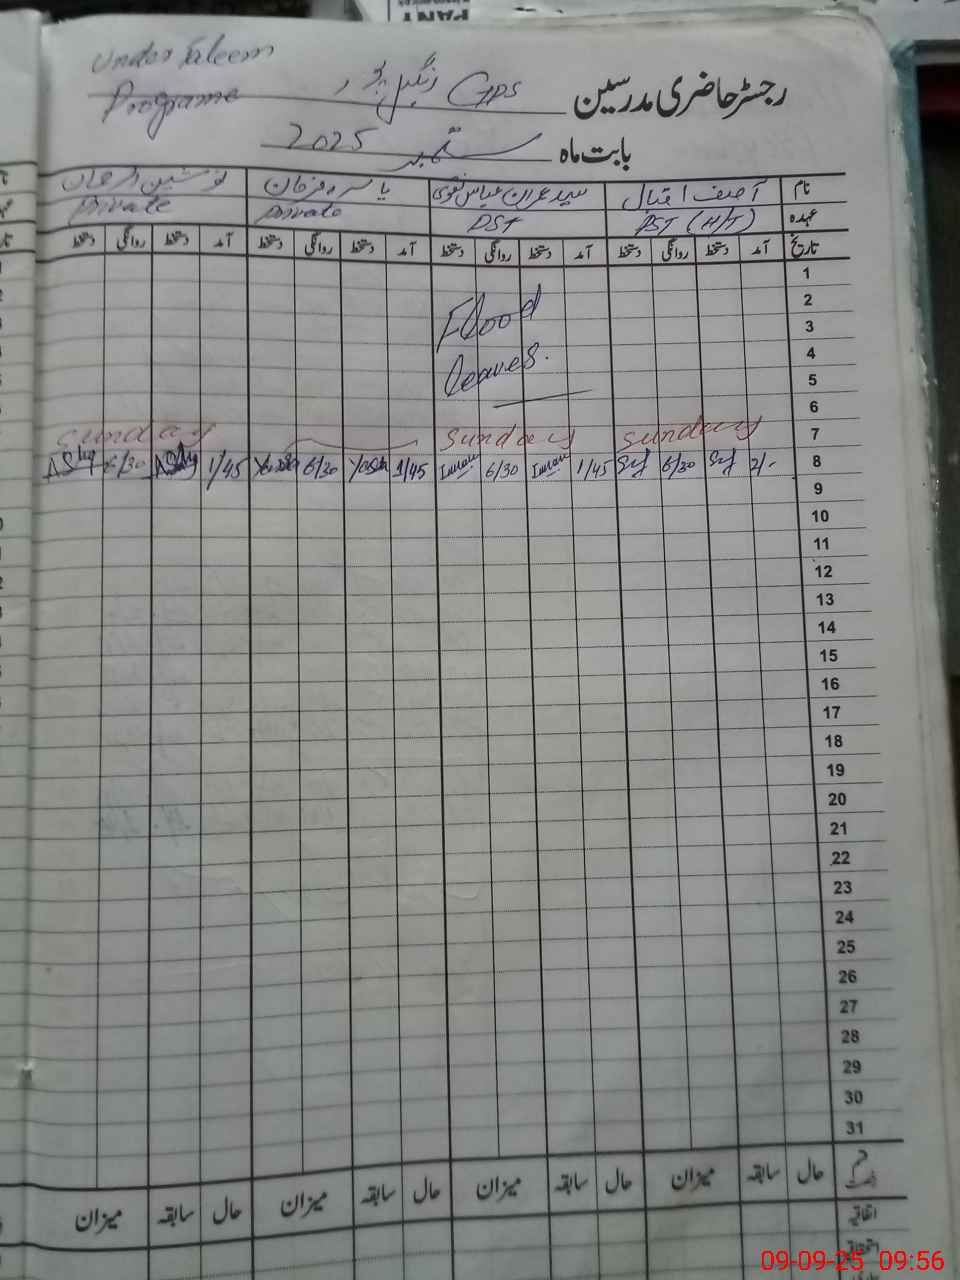 PANT
Under Taleem
Programe
رجسٹر حاضری مدرسین GPS رنگیل پور
بابت ماہ ستمبر 2025
نام آصف اقبال سید عمران عباس نقوی یاسرہ فرحان
عہدہ PST (H/T) PST Private Private
تاریخ آمد دستخط روانگی دستخط آمد دستخط روانگی دستخط آمد دستخط روانگی دستخط آمد دستخط روانگی دستخط
1
2 Flood
3
4 leaves.
5
6
7 Sunday Sunday Sunday
8 2/- 6/30 1/45 Imran 6/30 Imran 1/45 Yasra 6/30 1/45 6/30
9
10
11
12
13
14
15
16
17
18
19
20
21
22
23
24
25
26
27
28
29
30
31
حال سابقہ میزان حال سابقہ میزان حال سابقہ میزان حال سابقہ میزان
اتفاقیہ
استحقاقیہ
09-09-25 09:56